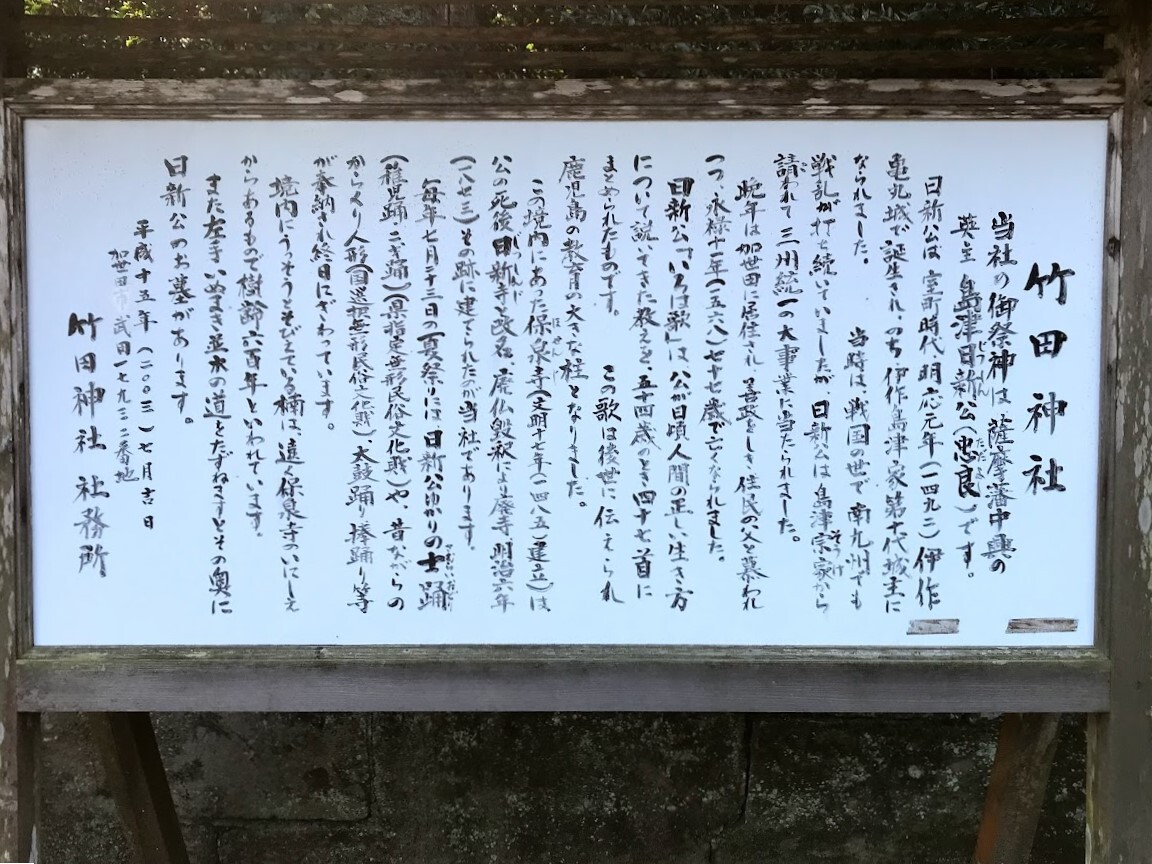 竹田神社
当社の御祭神は薩摩藩中興の
英主 島津日新公(忠良)です。
日新公は室町時代、明応元年(一四九二)伊作
亀丸城で誕生され、のち伊作島津家第十代城主に
なられました。 当時は戦国の世で南九州でも
戦乱が打ち続いていましたが、日新公は島津宗家から
請われて三州統一の大事業に当たられました。
晩年は加世田に居住され 善政をしき住民の父と慕われ
つつ、永禄十一年(一五六八)七十七歳で亡くなられました。
日新公「いろは歌」は公が日頃人間の正しい生き方
について説いてきた教えを、五十四歳のとき四十七首に
まとめられたものです。 この歌は後世に伝えられ
鹿児島の教育の大きな柱となりました。
この境内にあった保泉寺(文明十七年(一四八五)建立)は
公の死後日新寺と改名、廃仏毀釈により廃寺 明治六年
(一八七三)その跡に建てられたのが当社であります。
毎年七月二十三日の夏祭りには、日新公ゆかりの士踊
(稚児踊 二才踊)(県指定無形民俗文化財)や、昔ながらの
からくり人形(国選択無形民俗文化財)、太鼓踊り棒踊り等
が奉納され終日にぎわっています。
境内にうっそうとそびえている楠は、遠く保泉寺のいにしえ
からあるもので樹齢六百年といわれています。
また左手いぬまき並木の道をたずねますとその奥に
日新公のお墓があります。
平成十五年(二〇〇三)七月吉日
加世田市武田一七九三二番地
竹田神社 社務所